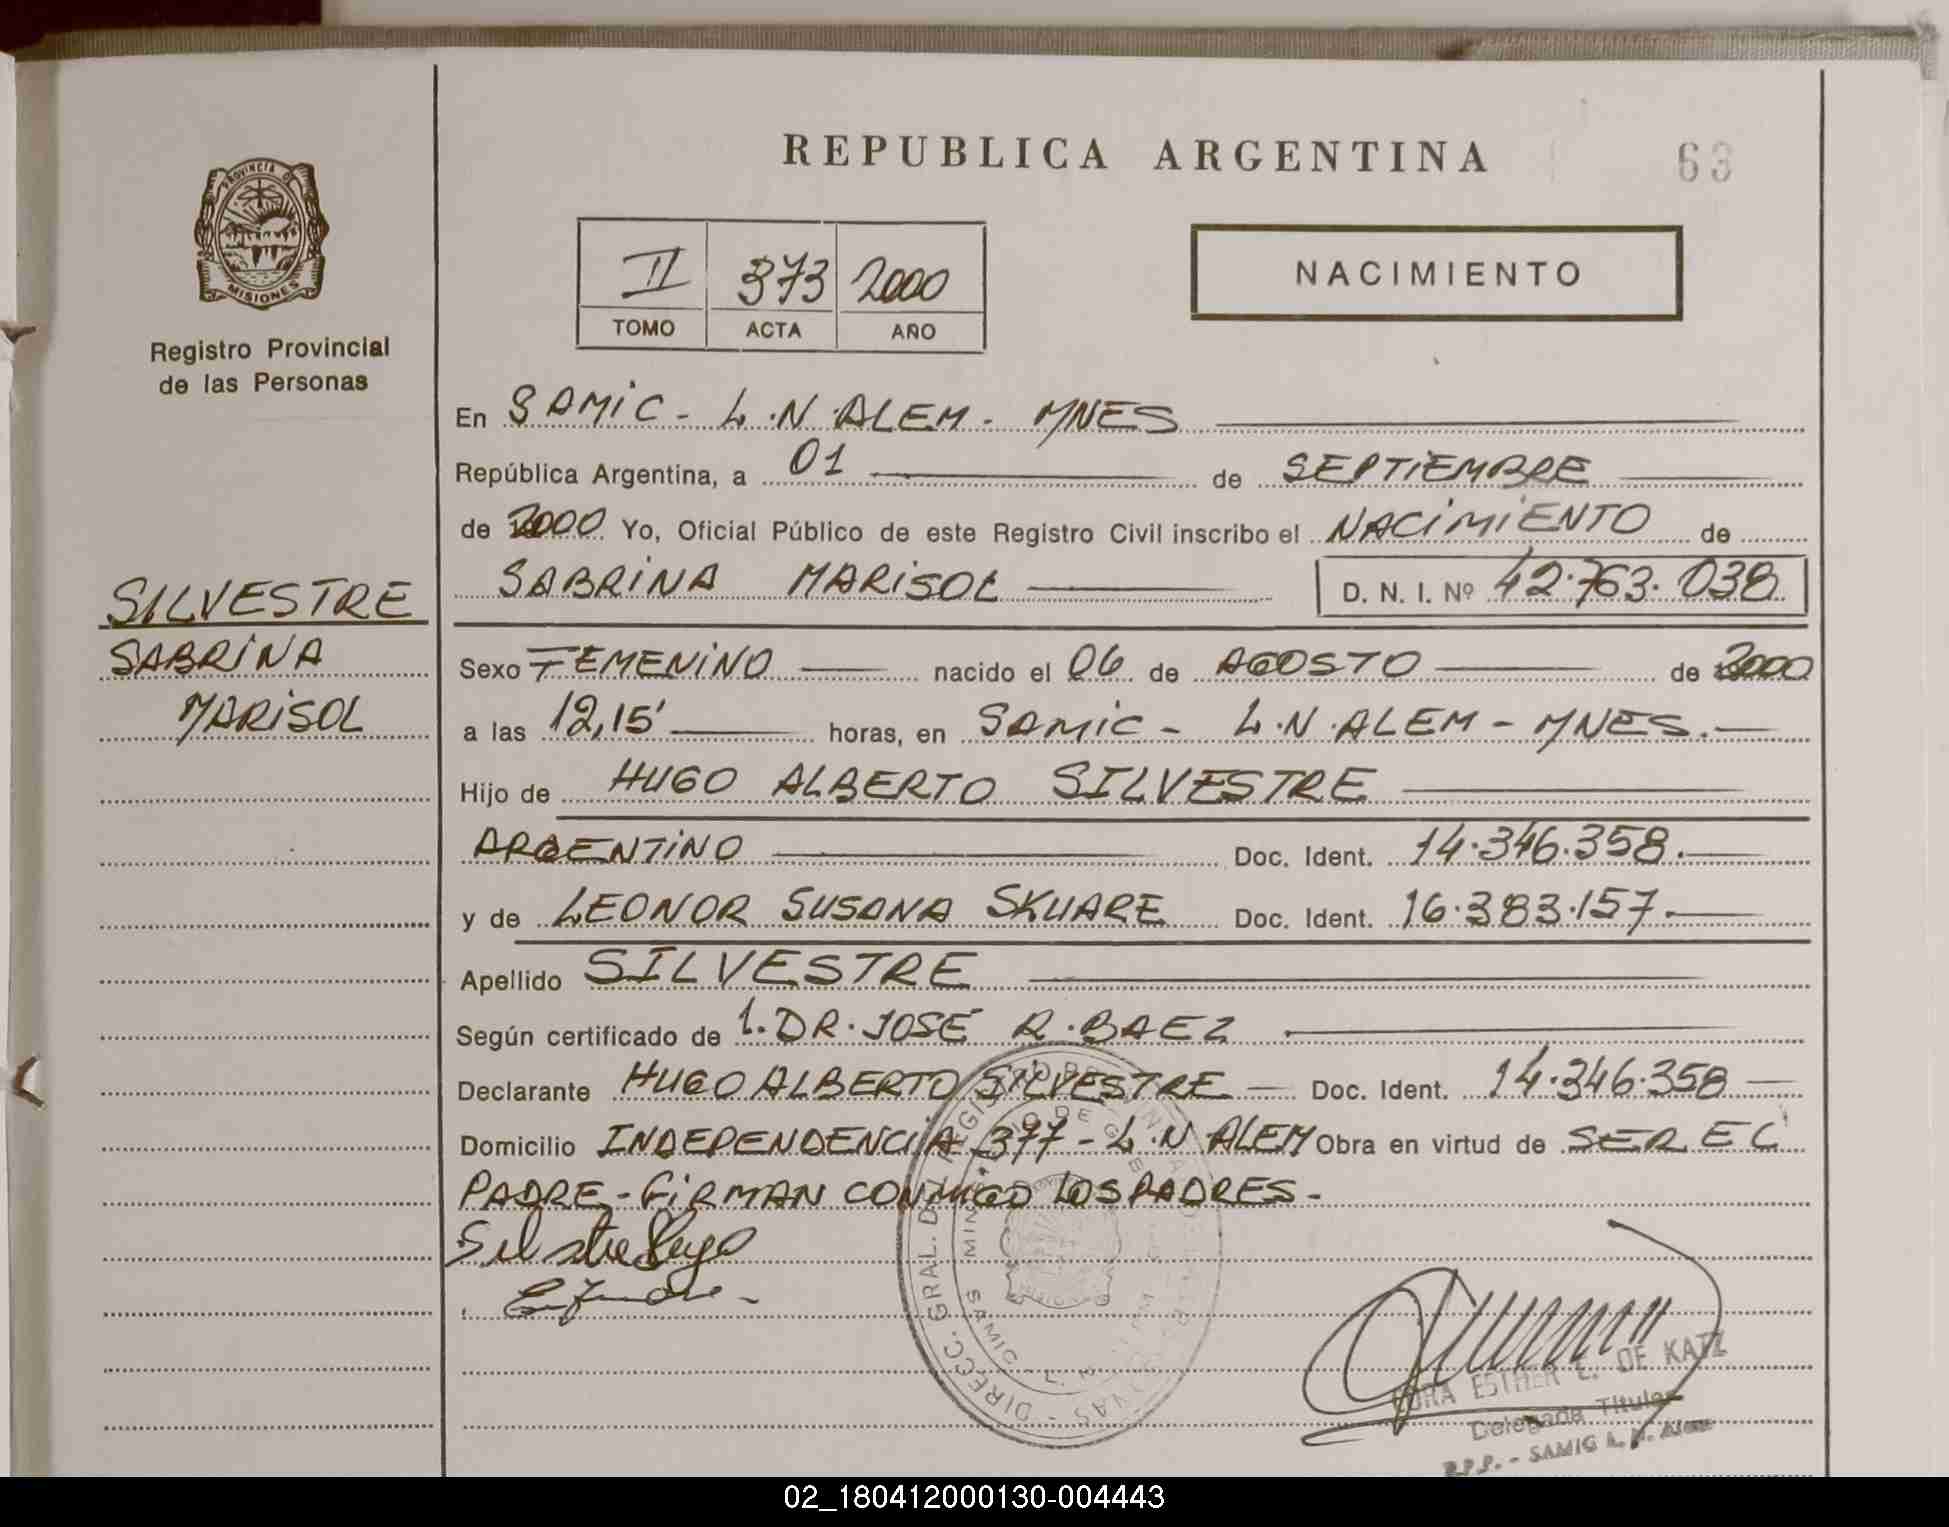 REPUBLICA ARGENTINA
63
PROVINCIA DE
MISIONES
Registro Provincial
de las Personas
II 373 2000
TOMO ACTA AÑO
NACIMIENTO
En SAMiC - L.N.ALEM - MNES
República Argentina, a 01 de SEPTiEMBRE
de 2000 Yo, Oficial Público de este Registro Civil inscribo el NACiMiENTO de
SABRiNA MARiSOL D. N. I. Nº 42.763.038
SILVESTRE
SABRiNA
MARiSOL
Sexo FEMENiNO nacido el 06 de AGOSTO de 2000
a las 12,15' horas, en SAMiC - L.N.ALEM - MNES.
Hijo de HUGO ALBERTO SILVESTRE
ARGENTiNO Doc. Ident. 14.346.358.
y de LEONOR SUSANA SKUARE Doc. Ident. 16.383.157.
Apellido SILVESTRE
Según certificado de 1. DR. JOSÉ R. BAEZ
Declarante HUGO ALBERTO SILVESTRE Doc. Ident. 14.346.358
Domicilio INDEPENDENCIA 377 - L.N ALEM Obra en virtud de SER EL
PADRE - FiRMAN CONMIGO LOS PADRES.
Silvestre Hugo
DIRECC. GRAL. DEL REGISTRO
SAMIC
ESTHER E. OF KATZ
Delegada Titular
R.P.P. - SAMIC L. N. Alem
02_180412000130-004443